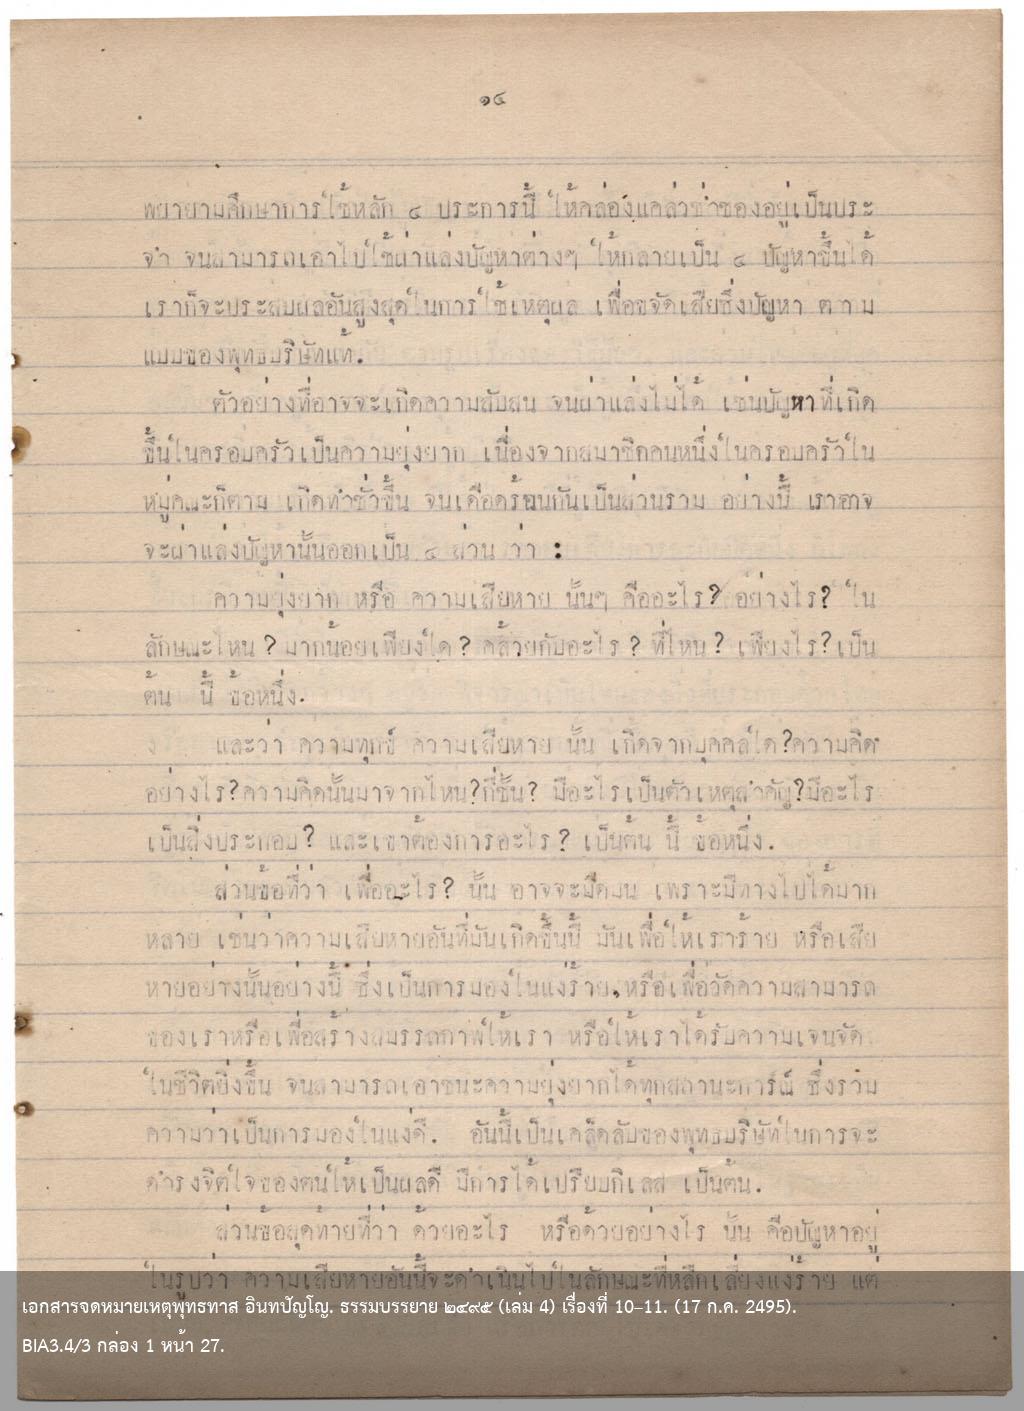 ๑๔
พยายามศึกษาการใช้หลัก ๔ ประการนี้ ให้คล่องแคล่วช่ำชองอยู่เป็นประ
จำ จนสามารถเอาไปใช้ผ่าแล่งปัญหาต่างๆ ให้กลายเป็น ๔ ปัญหาขึ้นได้
เราก็จะประสบผลอันสูงสุดในการใช้เหตุผล เพื่อขจัดเสียซึ่งปัญหา ตาม
แบบของพุทธบริษัทแท้.
ตัวอย่างที่อาจจะเกิดความสับสน จนผ่าแล่งไม่ได้ เช่นปัญหาที่เกิด
ขึ้นในครอบครัวเป็นความยุ่งยาก เนื่องจากสมาชิกคนหนึ่งในครอบครัวใน
หมู่คณะก็ตาม เกิดทำชั่วขึ้น จนเดือดร้อนกันเป็นส่วนรวม อย่างนี้ เราอาจ
จะผ่าแล่งปัญหานั้นออกเป็น ๔ ส่วน ว่า :
ความยุ่งยาก หรือ ความเสียหาย นั้นๆ คืออะไร? อย่างไร? ใน
ลักษณะไหน ? มากน้อยเพียงใด ? คล้ายกับอะไร ? ที่ไหน ? เพียงไร? เป็น
ต้น นี้ ข้อหนึ่ง.
และว่า ความทุกข์ ความเสียหาย นั้น เกิดจากบุคคลใด?ความคิด
อย่างไร?ความคิดนั้นมาจากไหน?กี่ชั้น? มีอะไรเป็นตัวเหตุสำคัญ?มีอะไร
เป็นสิ่งประกอบ? และเขาต้องการอะไร? เป็นต้น นี้ ข้อหนึ่ง.
ส่วนข้อที่ว่า เพื่ออะไร? นั้น อาจจะมืดมน เพราะมีทางไปได้มาก
หลาย เช่นว่าความเสียหายอันที่มันเกิดขึ้นนี้ มันเพื่อให้เราร้าย หรือเสีย
หายอย่างนั้นอย่างนี้ ซึ่งเป็นการมองในแง่ร้าย,หรือเพื่อวัดความสามารถ
ของเราหรือเพื่อสร้างสมรรถภาพให้เรา หรือให้เราได้รับความเจนจัด
ในชีวิตยิ่งขึ้น จนสามารถเอาชนะความยุ่งยากได้ทุกสถานะการณ์ ซึ่งรวม
ความว่าเป็นการมองในแง่ดี. อันนี้เป็นเคล็ดลับของพุทธบริษัทในการจะ
ดำรงจิตใจของตนให้เป็นผลดี มีการได้เปรียบกิเลส เป็นต้น.
ส่วนข้อสุดท้ายที่ว่า ด้วยอะไร หรือด้วยอย่างไร นั้น คือปัญหาอยู่
ในรูปว่า ความเสียหายอันนี้จะดำเนินไปในลักษณะที่หลีกเลี่ยงแง่ร้าย แต่
เอกสารจดหมายเหตุพุทธทาส อินทปัญโญ. ธรรมบรรยาย ๒๔๙๕ (เล่ม 4) เรื่องที่ 10–11. (17 ก.ค. 2495).
BIA3.4/3 กล่อง 1 หน้า 27.